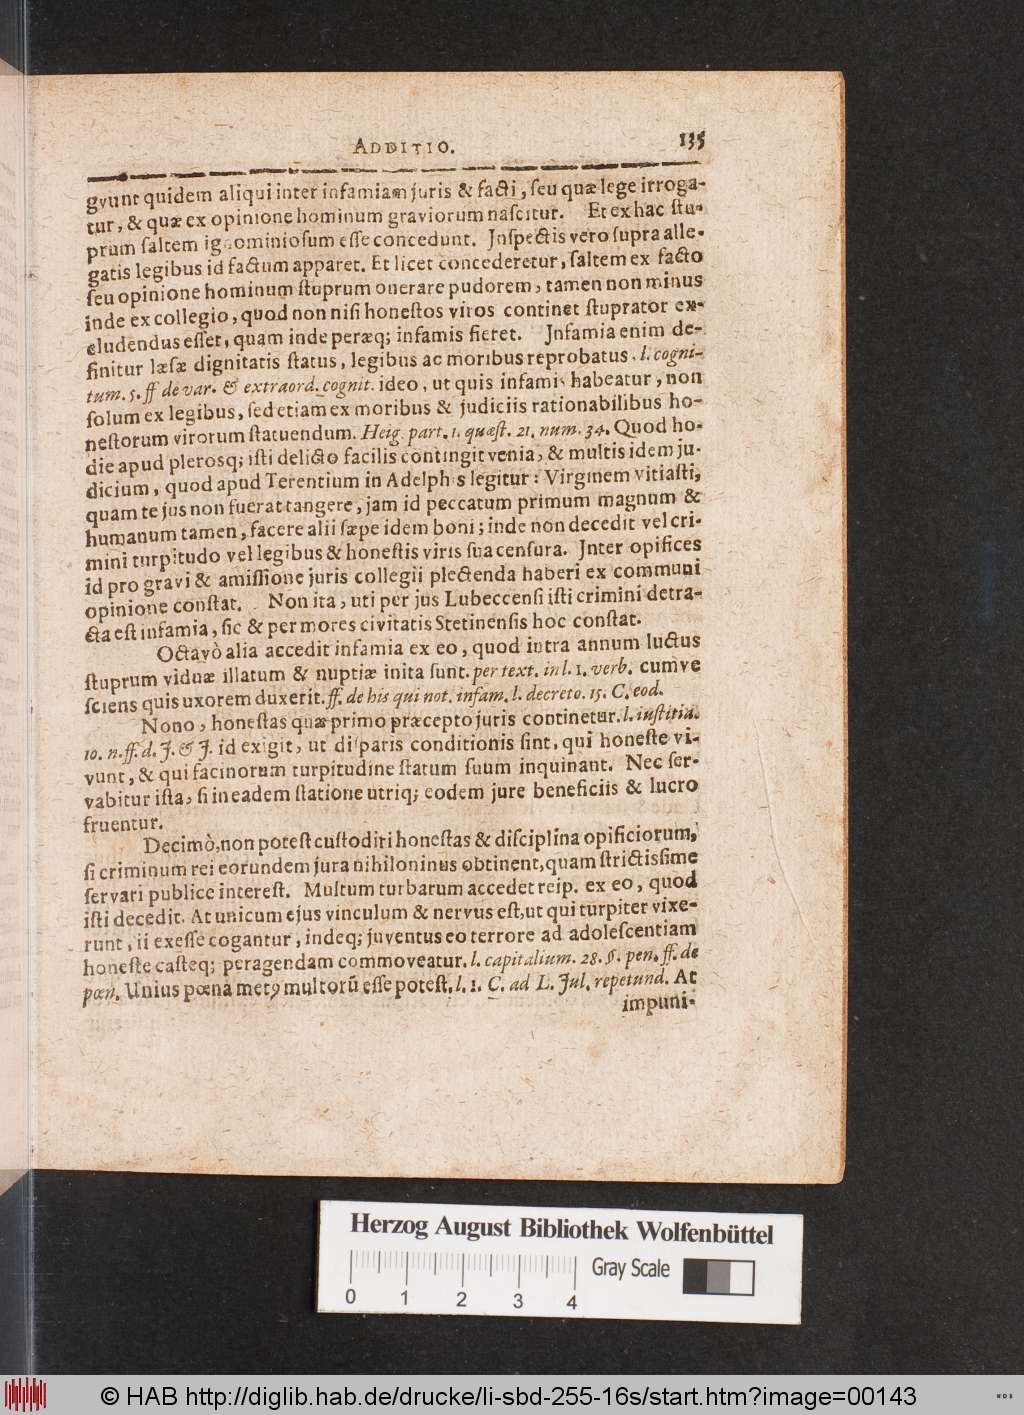 ADDITIO. 135
gvunt quidem aliqui inter infamiam juris & facti, ſeu quæ lege irroga-
tur, & quæ ex opinione hominum graviorum naſcitur. Et ex hac ſtu-
prum ſaltem ignominioſum eſſe concedunt. Jnſpectis vero ſupra alle-
gatis legibus id factum apparet. Et licet concederetur, ſaltem ex facto
ſeu opinione hominum ſtuprum onerare pudorem, tamen non minus
inde ex collegio, quod non niſi honeſtos viros continet ſtuprator ex-
cludendus eſſet, quam inde peræq; infamis fieret. Jnfamia enim de-
finitur læſæ dignitatis ſtatus, legibus ac moribus reprobatus. l. cogni-
tum. 5. ff de var. & extraord. cognit. ideo, ut quis infamis habeatur, non
ſolum ex legibus, ſed etiam ex moribus & judiciis rationabilibus ho-
neſtorum virorum ſtatuendum. Heig. part. 1. quæſt. 21. num. 34. Quod ho-
die apud pleroſq; iſti delicto facilis contingit venia, & multis idem ju-
dicium, quod apud Terentium in Adelph s legitur: Virginem vitiaſti,
quam te jus non fuerat tangere, jam id peccatum primum magnum &
humanum tamen, facere alii ſæpe idem boni; inde non decedit vel cri-
mini turpitudo vel legibus & honeſtis viris ſua cenſura. Jnter opifices
id pro gravi & amiſſione juris collegii plectenda haberi ex communi
opinione conſtat. Non ita, uti per jus Lubeccenſi iſti crimini detra-
cta eſt infamia, ſic & per mores civitatis Stetinenſis hoc conſtat.
Octavò alia accedit infamia ex eo, quod intra annum luctus
ſtuprum viduæ illatum & nuptiæ inita ſunt. per text. in l. 1. verb. cumve
ſciens quis uxorem duxerit. ff. de his qui not. infam. l. decreto. 15. C. eod.
Nono, honeſtas quæ primo præcepto juris continetur. l. iuſtitia.
10. n. ff. d. J. & J. id exigit, ut diſparis conditionis ſint, qui honeſte vi-
vunt, & qui facinorum turpitudine ſtatum ſuum inquinant. Nec ſer-
vabitur iſta, ſi in eadem ſtatione utriq; eodem jure beneficiis & lucro
fruentur.
Decimò, non poteſt cuſtodiri honeſtas & diſciplina opificiorum,
ſi criminum rei eorundem jura nihiloninus obtinent, quam ſtrictisſime
ſervari publice intereſt. Multum turbarum accedet reip. ex eo, quod
iſti decedit. At unicum ejus vinculum & nervus eſt, ut qui turpiter vixe-
runt, ii exeſſe cogantur, indeq; juventus eo terrore ad adoleſcentiam
honeſte caſteq; peragendam commoveatur. l. capitalium. 28. §. pen. ff. de
pœn. Unius pœna metꝰ multorũ eſſe poteſt. l. 1. C. ad L. Jul. repetund. At
impuni-
Herzog August Bibliothek Wolfenbüttel
Gray Scale
0 1 2 3 4
© HAB http://diglib.hab.de/drucke/li-sbd-255-16s/start.htm?image=00143
WDB